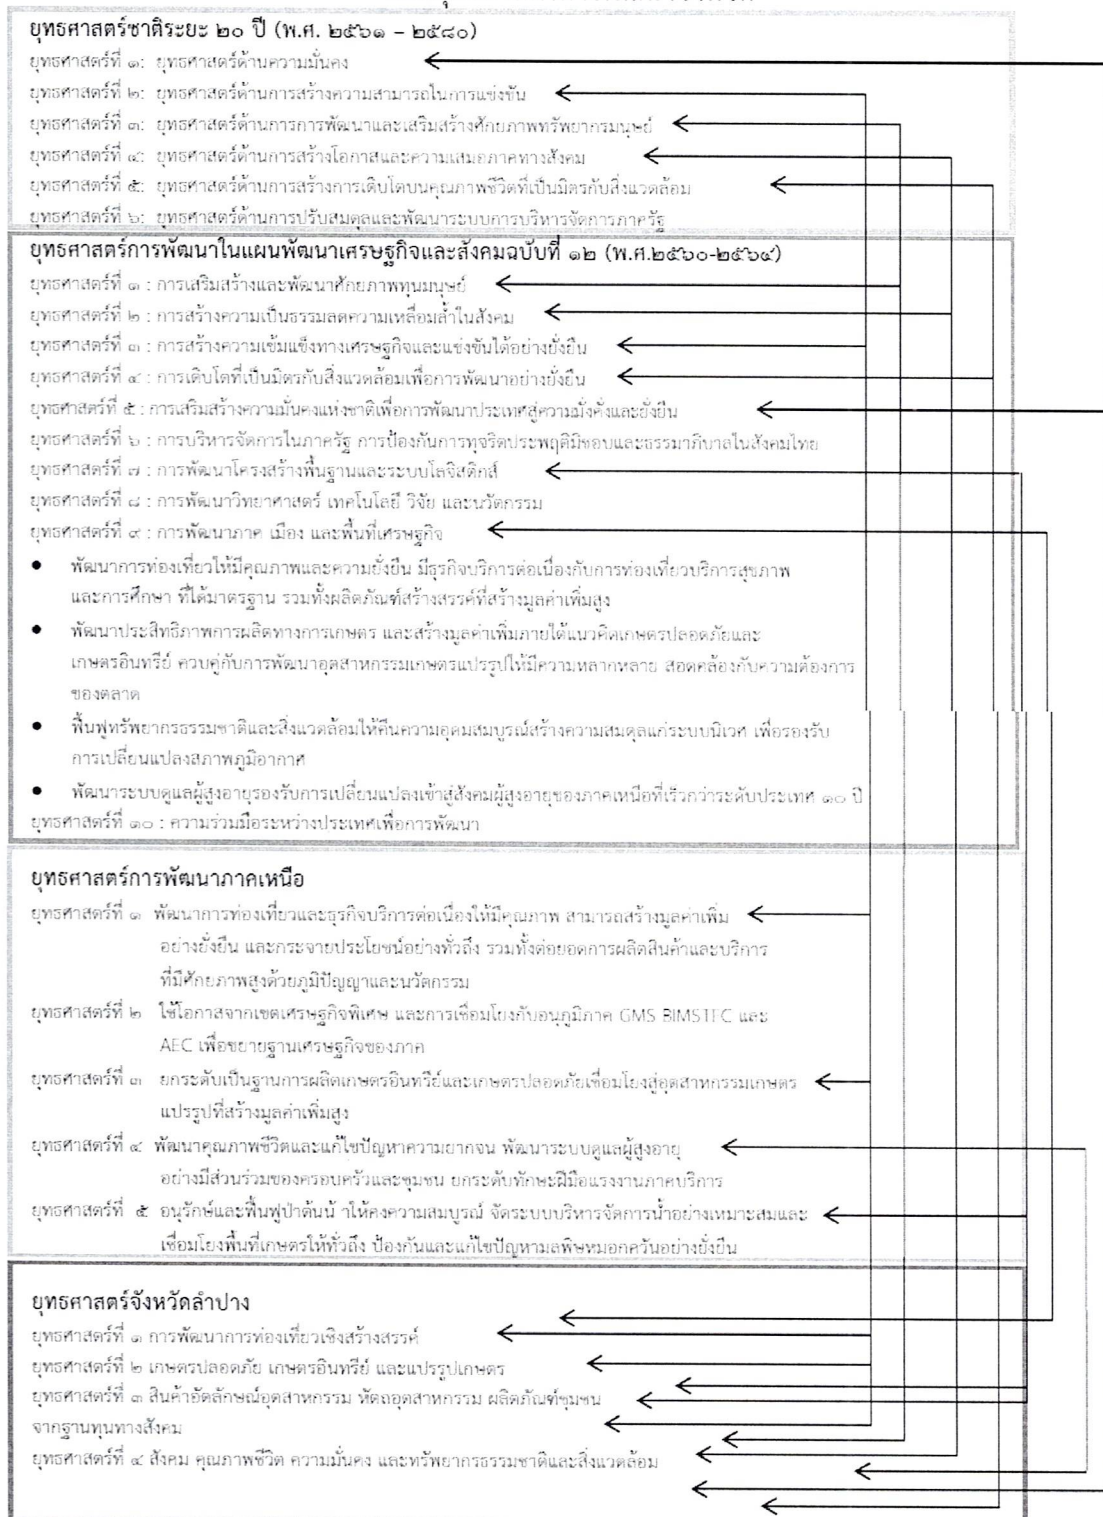 ยุทธศาสตร์ชาติระยะ ๒๐ ปี (พ.ศ. ๒๕๖๑ – ๒๕๘๐)
ยุทธศาสตร์ที่ ๑: ยุทธศาสตร์ด้านความมั่นคง
ยุทธศาสตร์ที่ ๒: ยุทธศาสตร์ด้านการสร้างความสามารถในการแข่งขัน
ยุทธศาสตร์ที่ ๓: ยุทธศาสตร์ด้านการการพัฒนาและเสริมสร้างศักยภาพทรัพยากรมนุษย์
ยุทธศาสตร์ที่ ๔: ยุทธศาสตร์ด้านการสร้างโอกาสและความเสมอภาคทางสังคม
ยุทธศาสตร์ที่ ๕: ยุทธศาสตร์ด้านการสร้างการเติบโตบนคุณภาพชีวิตที่เป็นมิตรกับสิ่งแวดล้อม
ยุทธศาสตร์ที่ ๖: ยุทธศาสตร์ด้านการปรับสมดุลและพัฒนาระบบการบริหารจัดการภาครัฐ
ยุทธศาสตร์การพัฒนาในแผนพัฒนาเศรษฐกิจและสังคมฉบับที่ ๑๒ (พ.ศ.๒๕๖๐-๒๕๖๔)
ยุทธศาสตร์ที่ ๑ : การเสริมสร้างและพัฒนาศักยภาพทุนมนุษย์
ยุทธศาสตร์ที่ ๒ : การสร้างความเป็นธรรมลดความเหลื่อมล้ำในสังคม
ยุทธศาสตร์ที่ ๓ : การสร้างความเข้มแข็งทางเศรษฐกิจและแข่งขันได้อย่างยั่งยืน
ยุทธศาสตร์ที่ ๔ : การเติบโตที่เป็นมิตรกับสิ่งแวดล้อมเพื่อการพัฒนาอย่างยั่งยืน
ยุทธศาสตร์ที่ ๕ : การเสริมสร้างความมั่นคงแห่งชาติเพื่อการพัฒนาประเทศสู่ความมั่งคั่งและยั่งยืน
ยุทธศาสตร์ที่ ๖ : การบริหารจัดการในภาครัฐ การป้องกันการทุจริตประพฤติมิชอบและธรรมาภิบาลในสังคมไทย
ยุทธศาสตร์ที่ ๗ : การพัฒนาโครงสร้างพื้นฐานและระบบโลจิสติกส์
ยุทธศาสตร์ที่ ๘ : การพัฒนาวิทยาศาสตร์ เทคโนโลยี วิจัย และนวัตกรรม
ยุทธศาสตร์ที่ ๙ : การพัฒนาภาค เมือง และพื้นที่เศรษฐกิจ
• พัฒนาการท่องเที่ยวให้มีคุณภาพและความยั่งยืน มีธุรกิจบริการต่อเนื่องกับการท่องเที่ยวบริการสุขภาพ
และการศึกษา ที่ได้มาตรฐาน รวมทั้งผลิตภัณฑ์สร้างสรรค์ที่สร้างมูลค่าเพิ่มสูง
• พัฒนาประสิทธิภาพการผลิตทางการเกษตร และสร้างมูลค่าเพิ่มภายใต้แนวคิดเกษตรปลอดภัยและ
เกษตรอินทรีย์ ควบคู่กับการพัฒนาอุตสาหกรรมเกษตรแปรรูปให้มีความหลากหลาย สอดคล้องกับความต้องการ
ของตลาด
• ฟื้นฟูทรัพยากรธรรมชาติและสิ่งแวดล้อมให้คืนความอุดมสมบูรณ์สร้างความสมดุลแก่ระบบนิเวศ เพื่อรองรับ
การเปลี่ยนแปลงสภาพภูมิอากาศ
• พัฒนาระบบดูแลผู้สูงอายุรองรับการเปลี่ยนแปลงเข้าสู่สังคมผู้สูงอายุของภาคเหนือที่เร็วกว่าระดับประเทศ ๑๐ ปี
ยุทธศาสตร์ที่ ๑๐ : ความร่วมมือระหว่างประเทศเพื่อการพัฒนา
ยุทธศาสตร์การพัฒนาภาคเหนือ
ยุทธศาสตร์ที่ ๑ พัฒนาการท่องเที่ยวและธุรกิจบริการต่อเนื่องให้มีคุณภาพ สามารถสร้างมูลค่าเพิ่ม
อย่างยั่งยืน และกระจายประโยชน์อย่างทั่วถึง รวมทั้งต่อยอดการผลิตสินค้าและบริการ
ที่มีศักยภาพสูงด้วยภูมิปัญญาและนวัตกรรม
ยุทธศาสตร์ที่ ๒ ใช้โอกาสจากเขตเศรษฐกิจพิเศษ และการเชื่อมโยงกับอนุภูมิภาค GMS BIMSTEC และ
AEC เพื่อขยายฐานเศรษฐกิจของภาค
ยุทธศาสตร์ที่ ๓ ยกระดับเป็นฐานการผลิตเกษตรอินทรีย์และเกษตรปลอดภัยเชื่อมโยงสู่อุตสาหกรรมเกษตร
แปรรูปที่สร้างมูลค่าเพิ่มสูง
ยุทธศาสตร์ที่ ๔ พัฒนาคุณภาพชีวิตและแก้ไขปัญหาความยากจน พัฒนาระบบดูแลผู้สูงอายุ
อย่างมีส่วนร่วมของครอบครัวและชุมชน ยกระดับทักษะฝีมือแรงงานภาคบริการ
ยุทธศาสตร์ที่ ๕ อนุรักษ์และฟื้นฟูป่าต้นน้ าให้คงความสมบูรณ์ จัดระบบบริหารจัดการน้ำอย่างเหมาะสมและ
เชื่อมโยงพื้นที่เกษตรให้ทั่วถึง ป้องกันและแก้ไขปัญหามลพิษหมอกควันอย่างยั่งยืน
ยุทธศาสตร์จังหวัดลำปาง
ยุทธศาสตร์ที่ ๑ การพัฒนาการท่องเที่ยวเชิงสร้างสรรค์
ยุทธศาสตร์ที่ ๒ เกษตรปลอดภัย เกษตรอินทรีย์ และแปรรูปเกษตร
ยุทธศาสตร์ที่ ๓ สินค้าอัตลักษณ์อุตสาหกรรม หัตถอุตสาหกรรม ผลิตภัณฑ์ชุมชน
จากฐานทุนทางสังคม
ยุทธศาสตร์ที่ ๔ สังคม คุณภาพชีวิต ความมั่นคง และทรัพยากรธรรมชาติและสิ่งแวดล้อม